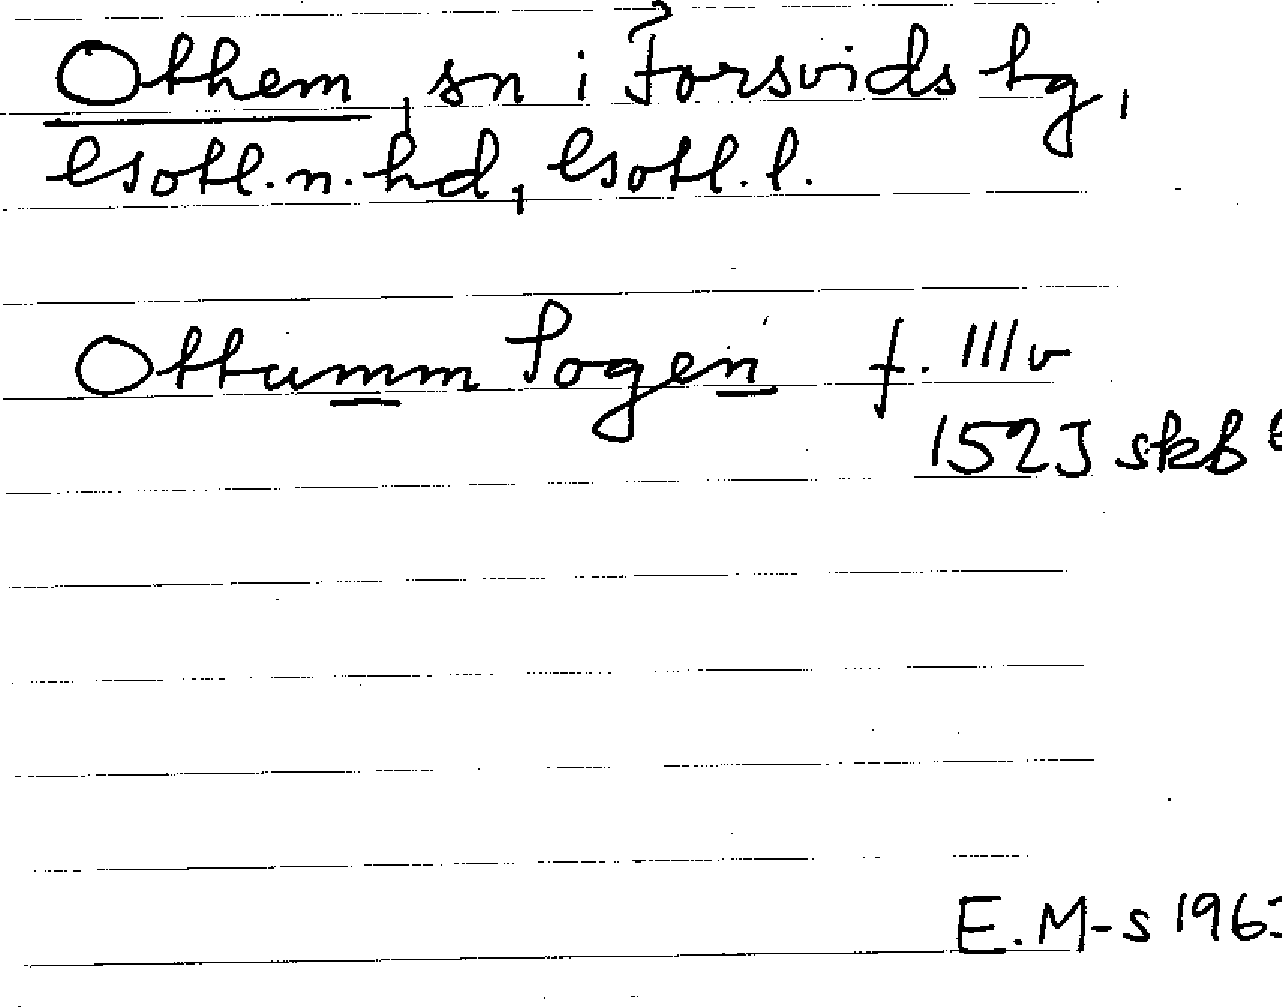 Othem, sn i Forsvids tg,
Gotl.n.hd, Gotl.l.
Ottumm Sogen f. 111v
1523 skb
E.M-s 196